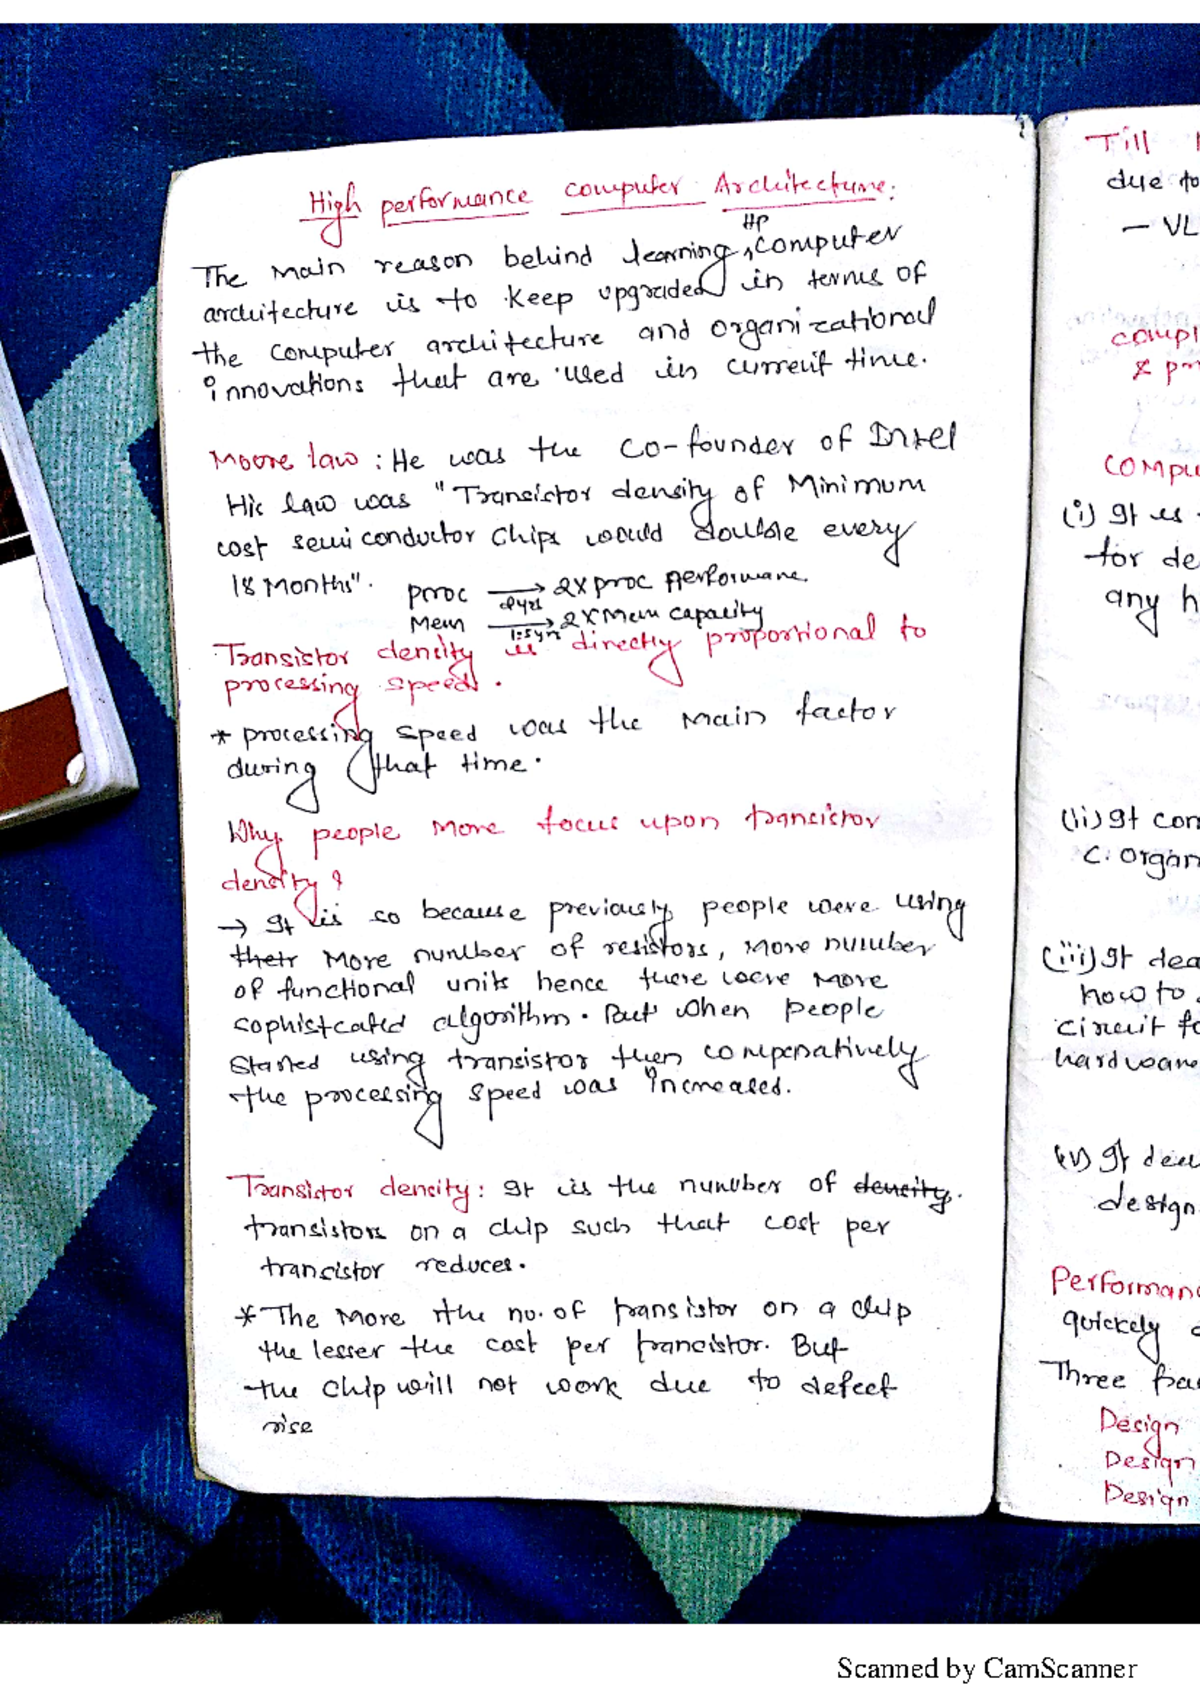 High performance computer Architecture.
HP
The main reason behind learning, computer
architecture is to keep upgraded in terms of
the computer architecture and organizational
innovations that are used in current time.
Moore law : He was the co-founder of Intel
His law was "Transistor density of Minimum
cost semi conductor chips would double every
18 months".
proc → 2x proc performance.
2yrs
Mem → 2x Mem capacity
1.5yrs
Transistor density is directly proportional to
processing speed.
* processing speed was the main factor
during that time.
Why people more focus upon transistor
density ?
→ It is so because previously people were using
their more number of resistors, more number
of functional units hence there were more
sophistcated algorithm. But when people
started using transistor then comperatively
the processing speed was increased.
Transistor density : It is the number of density.
transistors on a chip such that cost per
transistor reduces.
* The more the no. of transistor on a chip
the lesser the cost per transistor. But
the chip will not work due to defect
rise
Till
due to
- VL
compl
& pr
compu
(i) It is
for de
any h
(ii) It con
C. organ
(iii) It dea
how to
circuit fo
hardware
(iv) It dea
design
Performan
quickely
Three fac
Design
Design
Design
Scanned by CamScanner